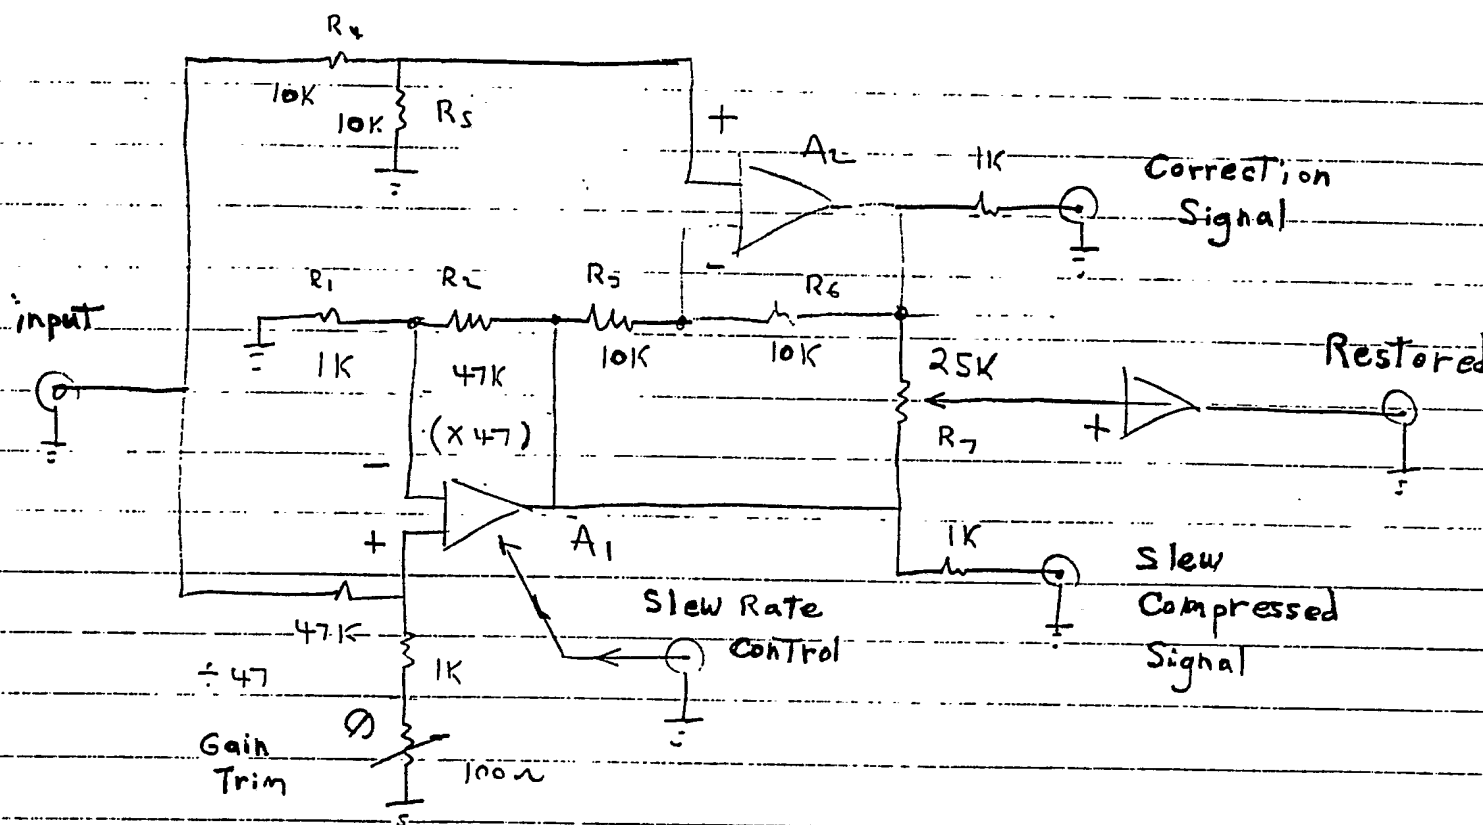 R4
10K
10K
R5
+
A2
1K
Correction
Signal
-
input
R1
R2
R5
R6
1K
47K
10K
10K
25K
Restored
(x 47)
R7
+
-
+
A1
1K
Slew
Compressed
Signal
Slew Rate
Control
47K
÷ 47
1K
Gain
Trim
100Ω